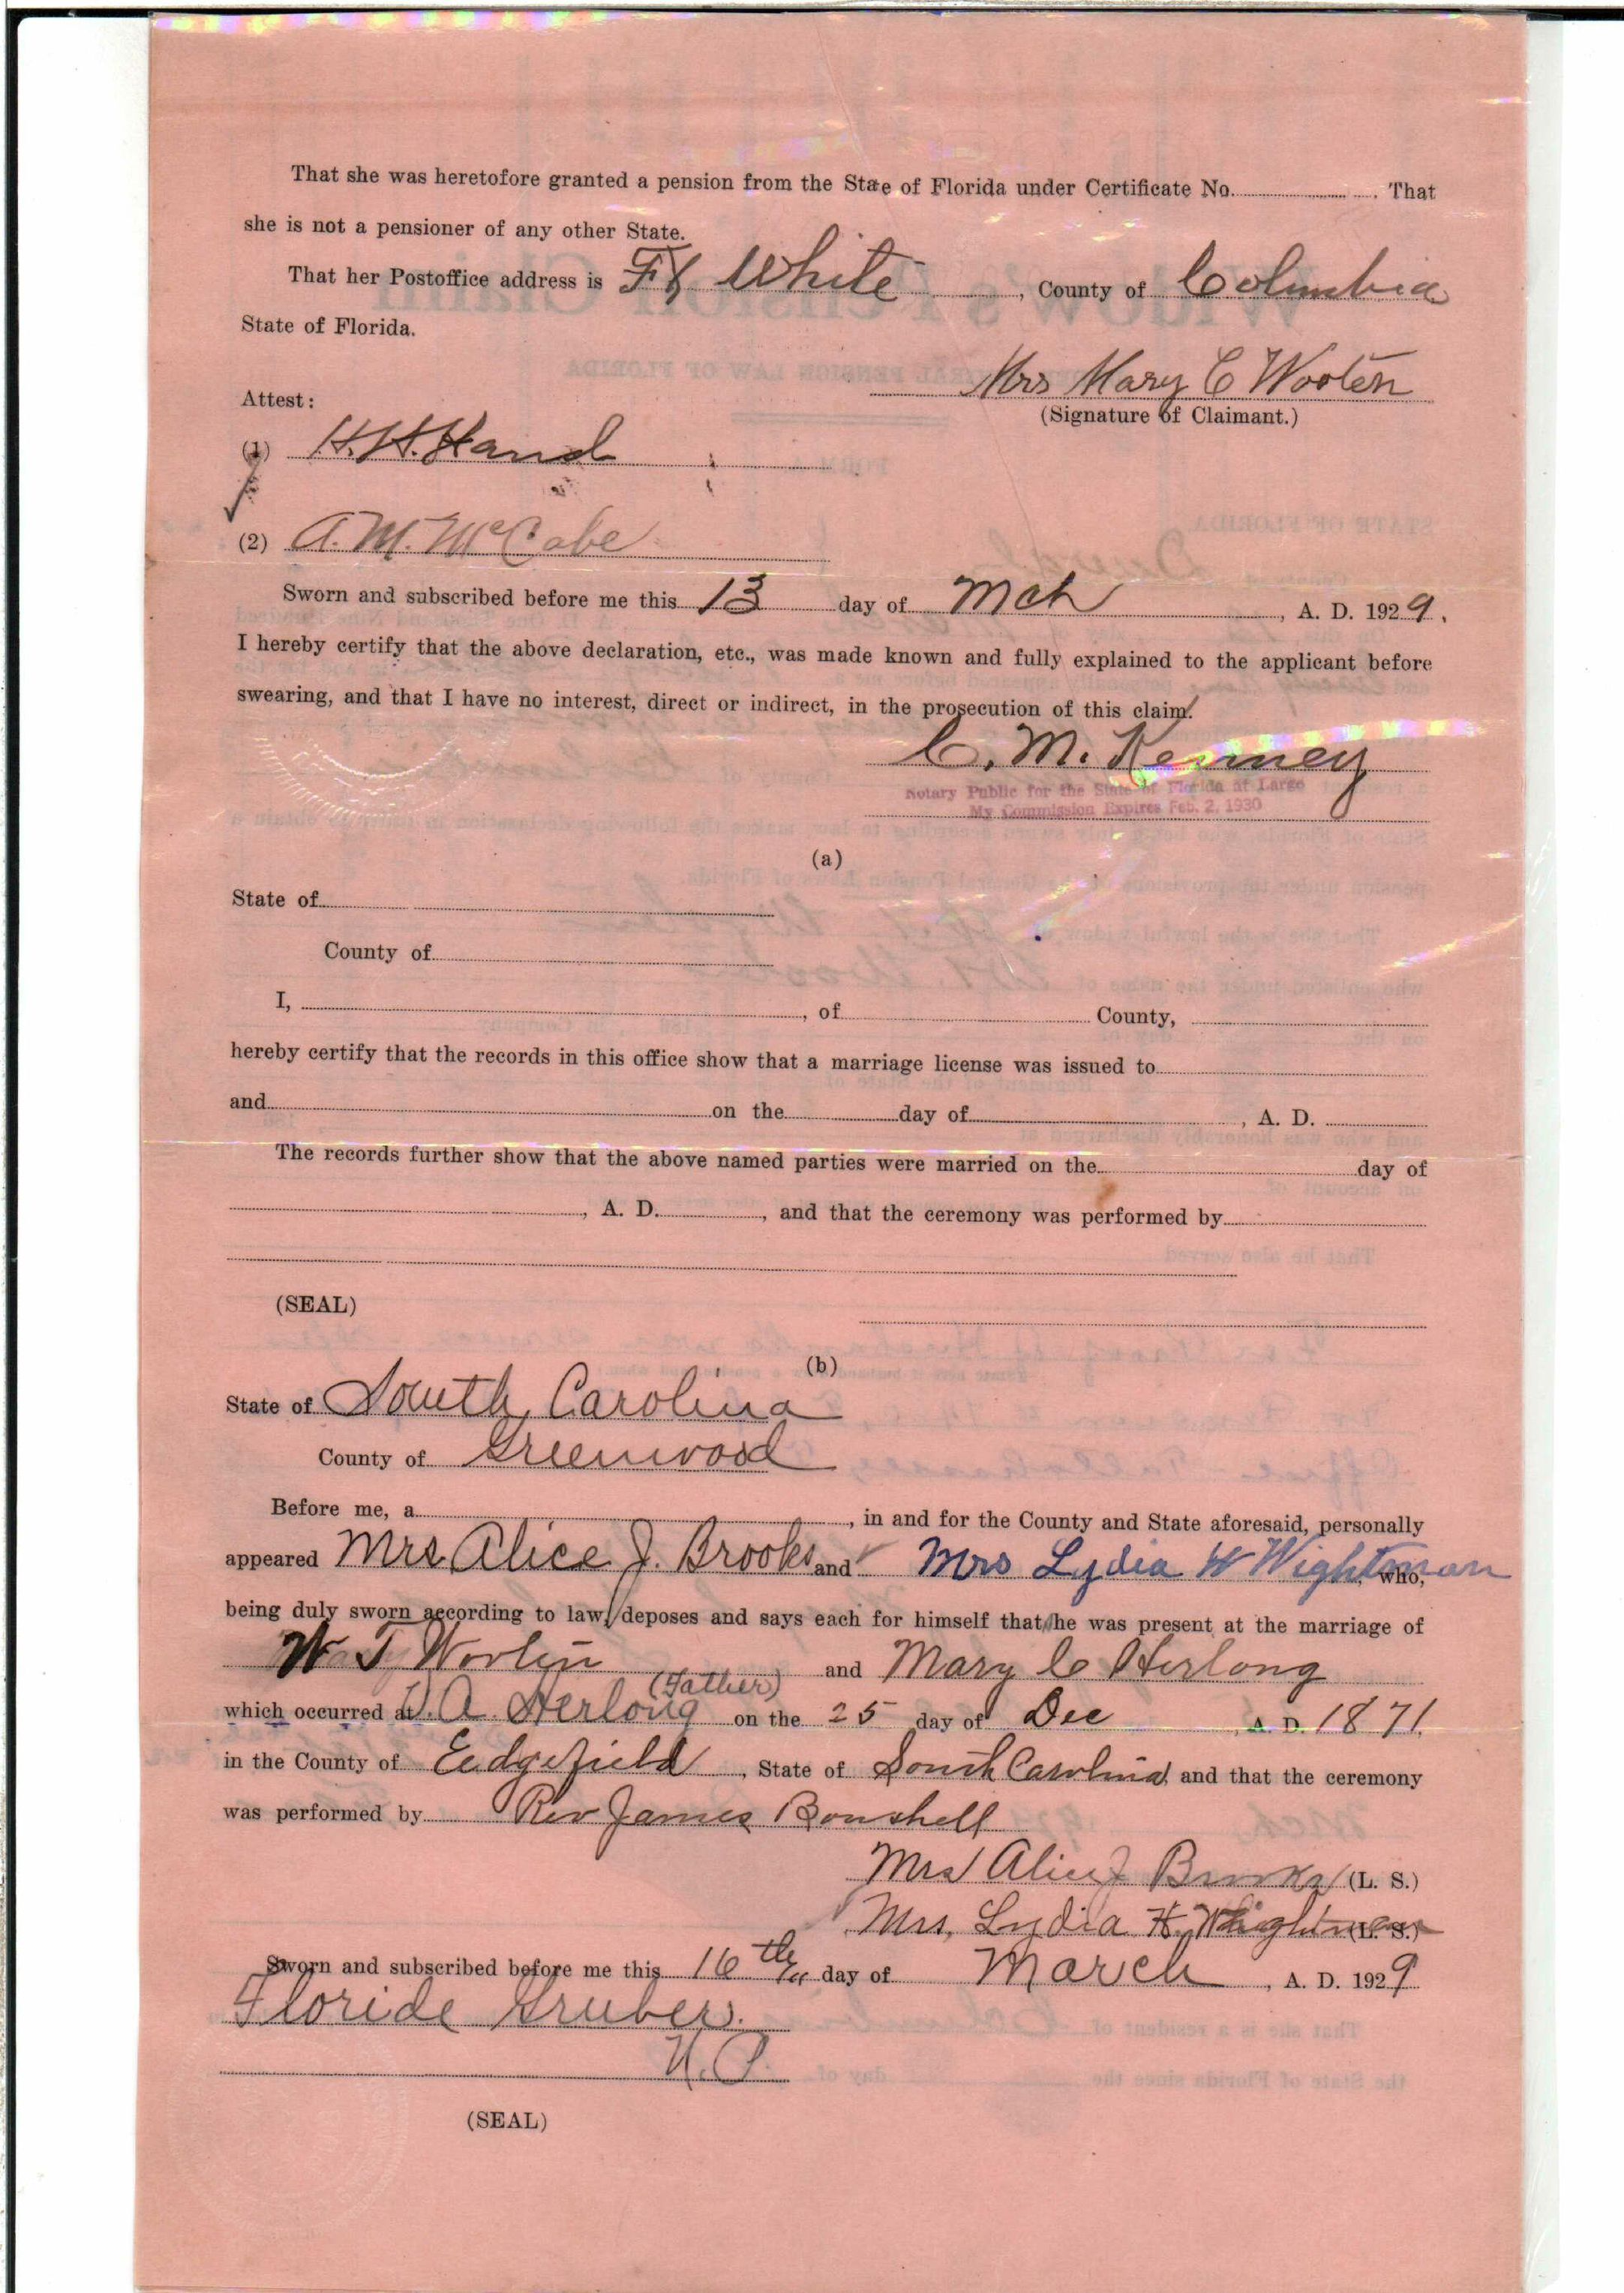 That she was heretofore granted a pension from the State of Florida under Certificate No. . That
she is not a pensioner of any other State.
That her Postoffice address is Ft White , County of Columbia
State of Florida.
Mrs Mary C Wooten
(Signature of Claimant.)
Attest:
(1) H.H. Hand
(2) A. M. McCabe
Sworn and subscribed before me this 13 day of Mch , A. D. 1929.
I hereby certify that the above declaration, etc., was made known and fully explained to the applicant before
swearing, and that I have no interest, direct or indirect, in the prosecution of this claim.
C. M. Kenney
Notary Public for the State of Florida at Large
My Commission Expires Feb. 2, 1930
(a)
State of
County of
I, , of County,
hereby certify that the records in this office show that a marriage license was issued to
and on the day of , A. D.
The records further show that the above named parties were married on the day of
, A. D. , and that the ceremony was performed by
(SEAL)
(b)
State of South Carolina
County of Greenwood
Before me, a , in and for the County and State aforesaid, personally
appeared Mrs Alice J. Brooks and Mrs Lydia H Wightman who,
being duly sworn according to law, deposes and says each for himself that he was present at the marriage of
W T Wooten and Mary C Herlong
(Father)
which occurred at A. Herlong on the 25 day of Dec , A. D. 1871.
in the County of Eedgefield , State of South Carolina, and that the ceremony
was performed by Rev James Boushell
Mrs Alice J Brooks (L. S.)
Mrs, Lydia H. Wightman (L. S.)
Sworn and subscribed before me this 16th day of March , A. D. 1929
Floride Gruber.
N. P.
(SEAL)